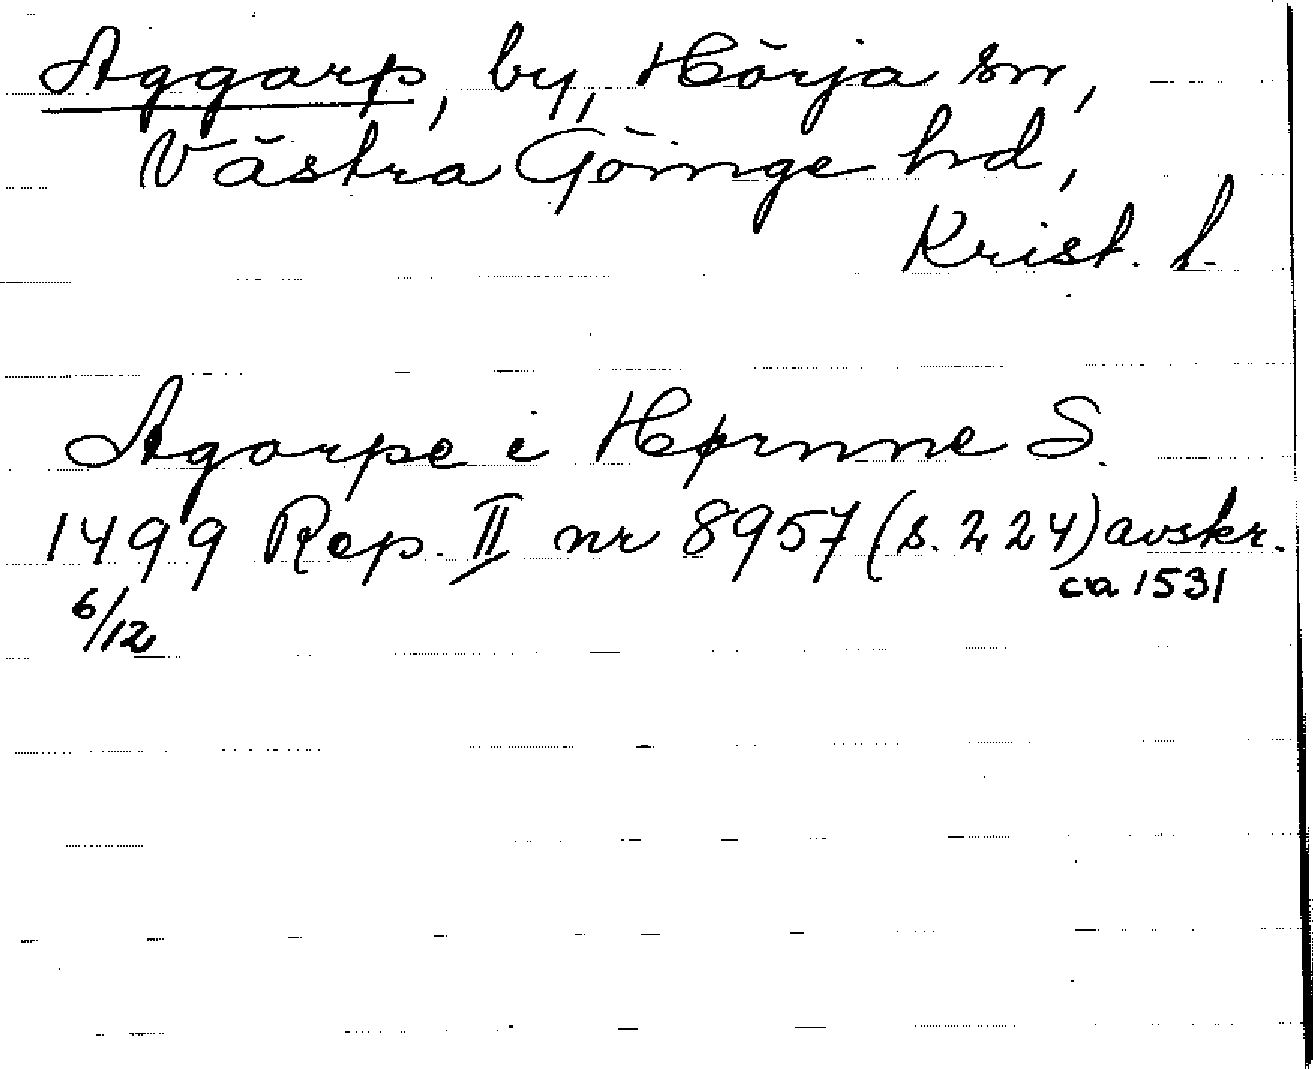 Aggarp, by, Hörja sn,
Västra Göinge hd,
Krist. l.
Agarpe i Hørnne S.
1499 Rep. II nr 8957 (s. 224) avskr.
ca 1531
6/12